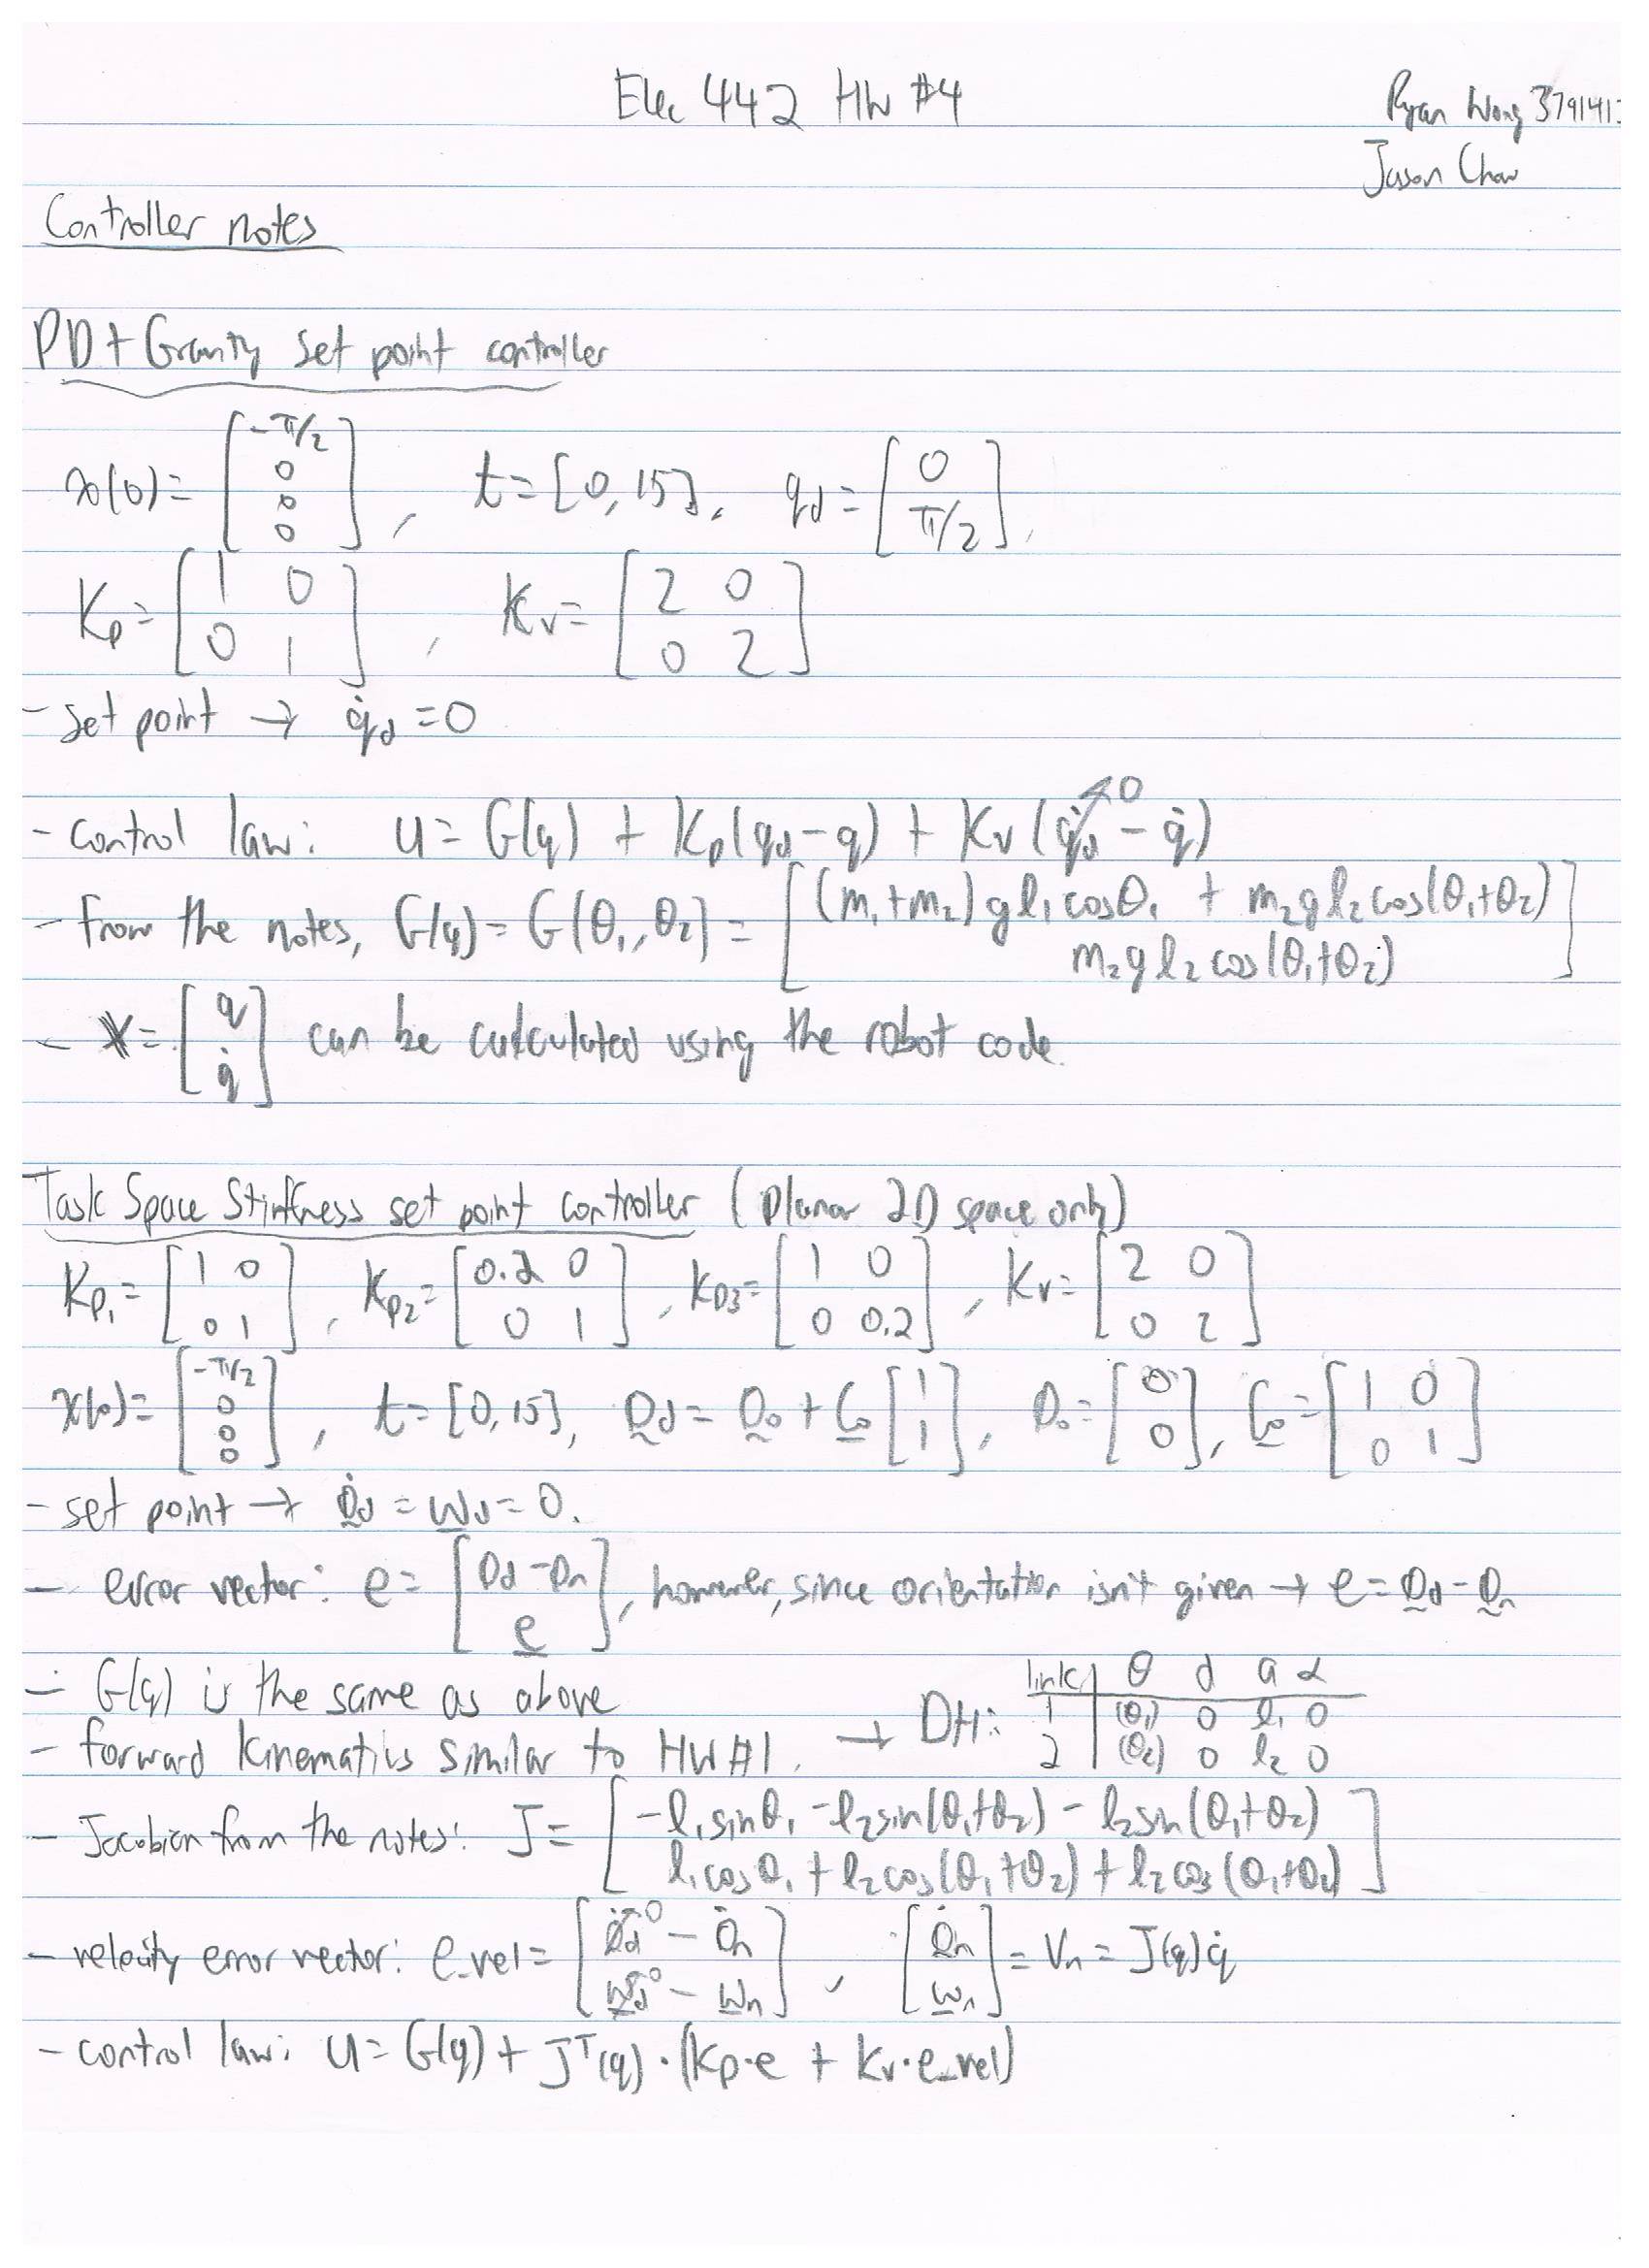 Elec 442 HW #4
Ryan Wong 3791413
Jason Chow
Controller notes
PD + Gravity set point controller
x(0) = [-π/2 0 0 0], t = [0, 15], q_d = [0 π/2],
K_p = [1 0; 0 1], K_v = [2 0; 0 2]
- set point → q̇_d = 0
- control law: u = G(q) + K_p(q_d - q) + K_v(q̇_d→0 - q̇)
- from the notes, G(q) = G(θ₁, θ₂) = [(m₁+m₂)gl₁cosθ₁ + m₂gl₂cos(θ₁+θ₂); m₂gl₂cos(θ₁+θ₂)]
- X = [q; q̇] can be calculated using the robot code.
Task Space Stiffness set point controller (planar 2D space only)
K_p₁ = [1 0; 0 1], K_p₂ = [0.2 0; 0 1], K_p₃ = [1 0; 0 0.2], K_v = [2 0; 0 2]
x(0) = [-π/2 0 0 0], t = [0, 15], O_d = O_o + C_o [1; 1], O_o = [0; 0], C_o = [1 0; 0 1]
- set point → Ȯ_d = ω_d = 0.
- error vector: e = [O_d - O_n; e], however, since orientation isn't given → e = O_d - O_n
- G(q) is the same as above
- forward kinematics similar to HW #1. → DH:
link θ d a α
1 (θ₁) 0 l₁ 0
2 (θ₂) 0 l₂ 0
- Jacobian from the notes: J = [-l₁sinθ₁ - l₂sin(θ₁+θ₂) - l₂sin(θ₁+θ₂); l₁cosθ₁ + l₂cos(θ₁+θ₂) + l₂cos(θ₁+θ₂)]
- velocity error vector: e_vel = [Ȯ_d→0 - Ȯ_n; ω_d→0 - ω_n], [Ȯ_n; ω_n] = V_n = J(q)q̇
- control law: u = G(q) + Jᵀ(q)·(K_p·e + K_v·e_vel)